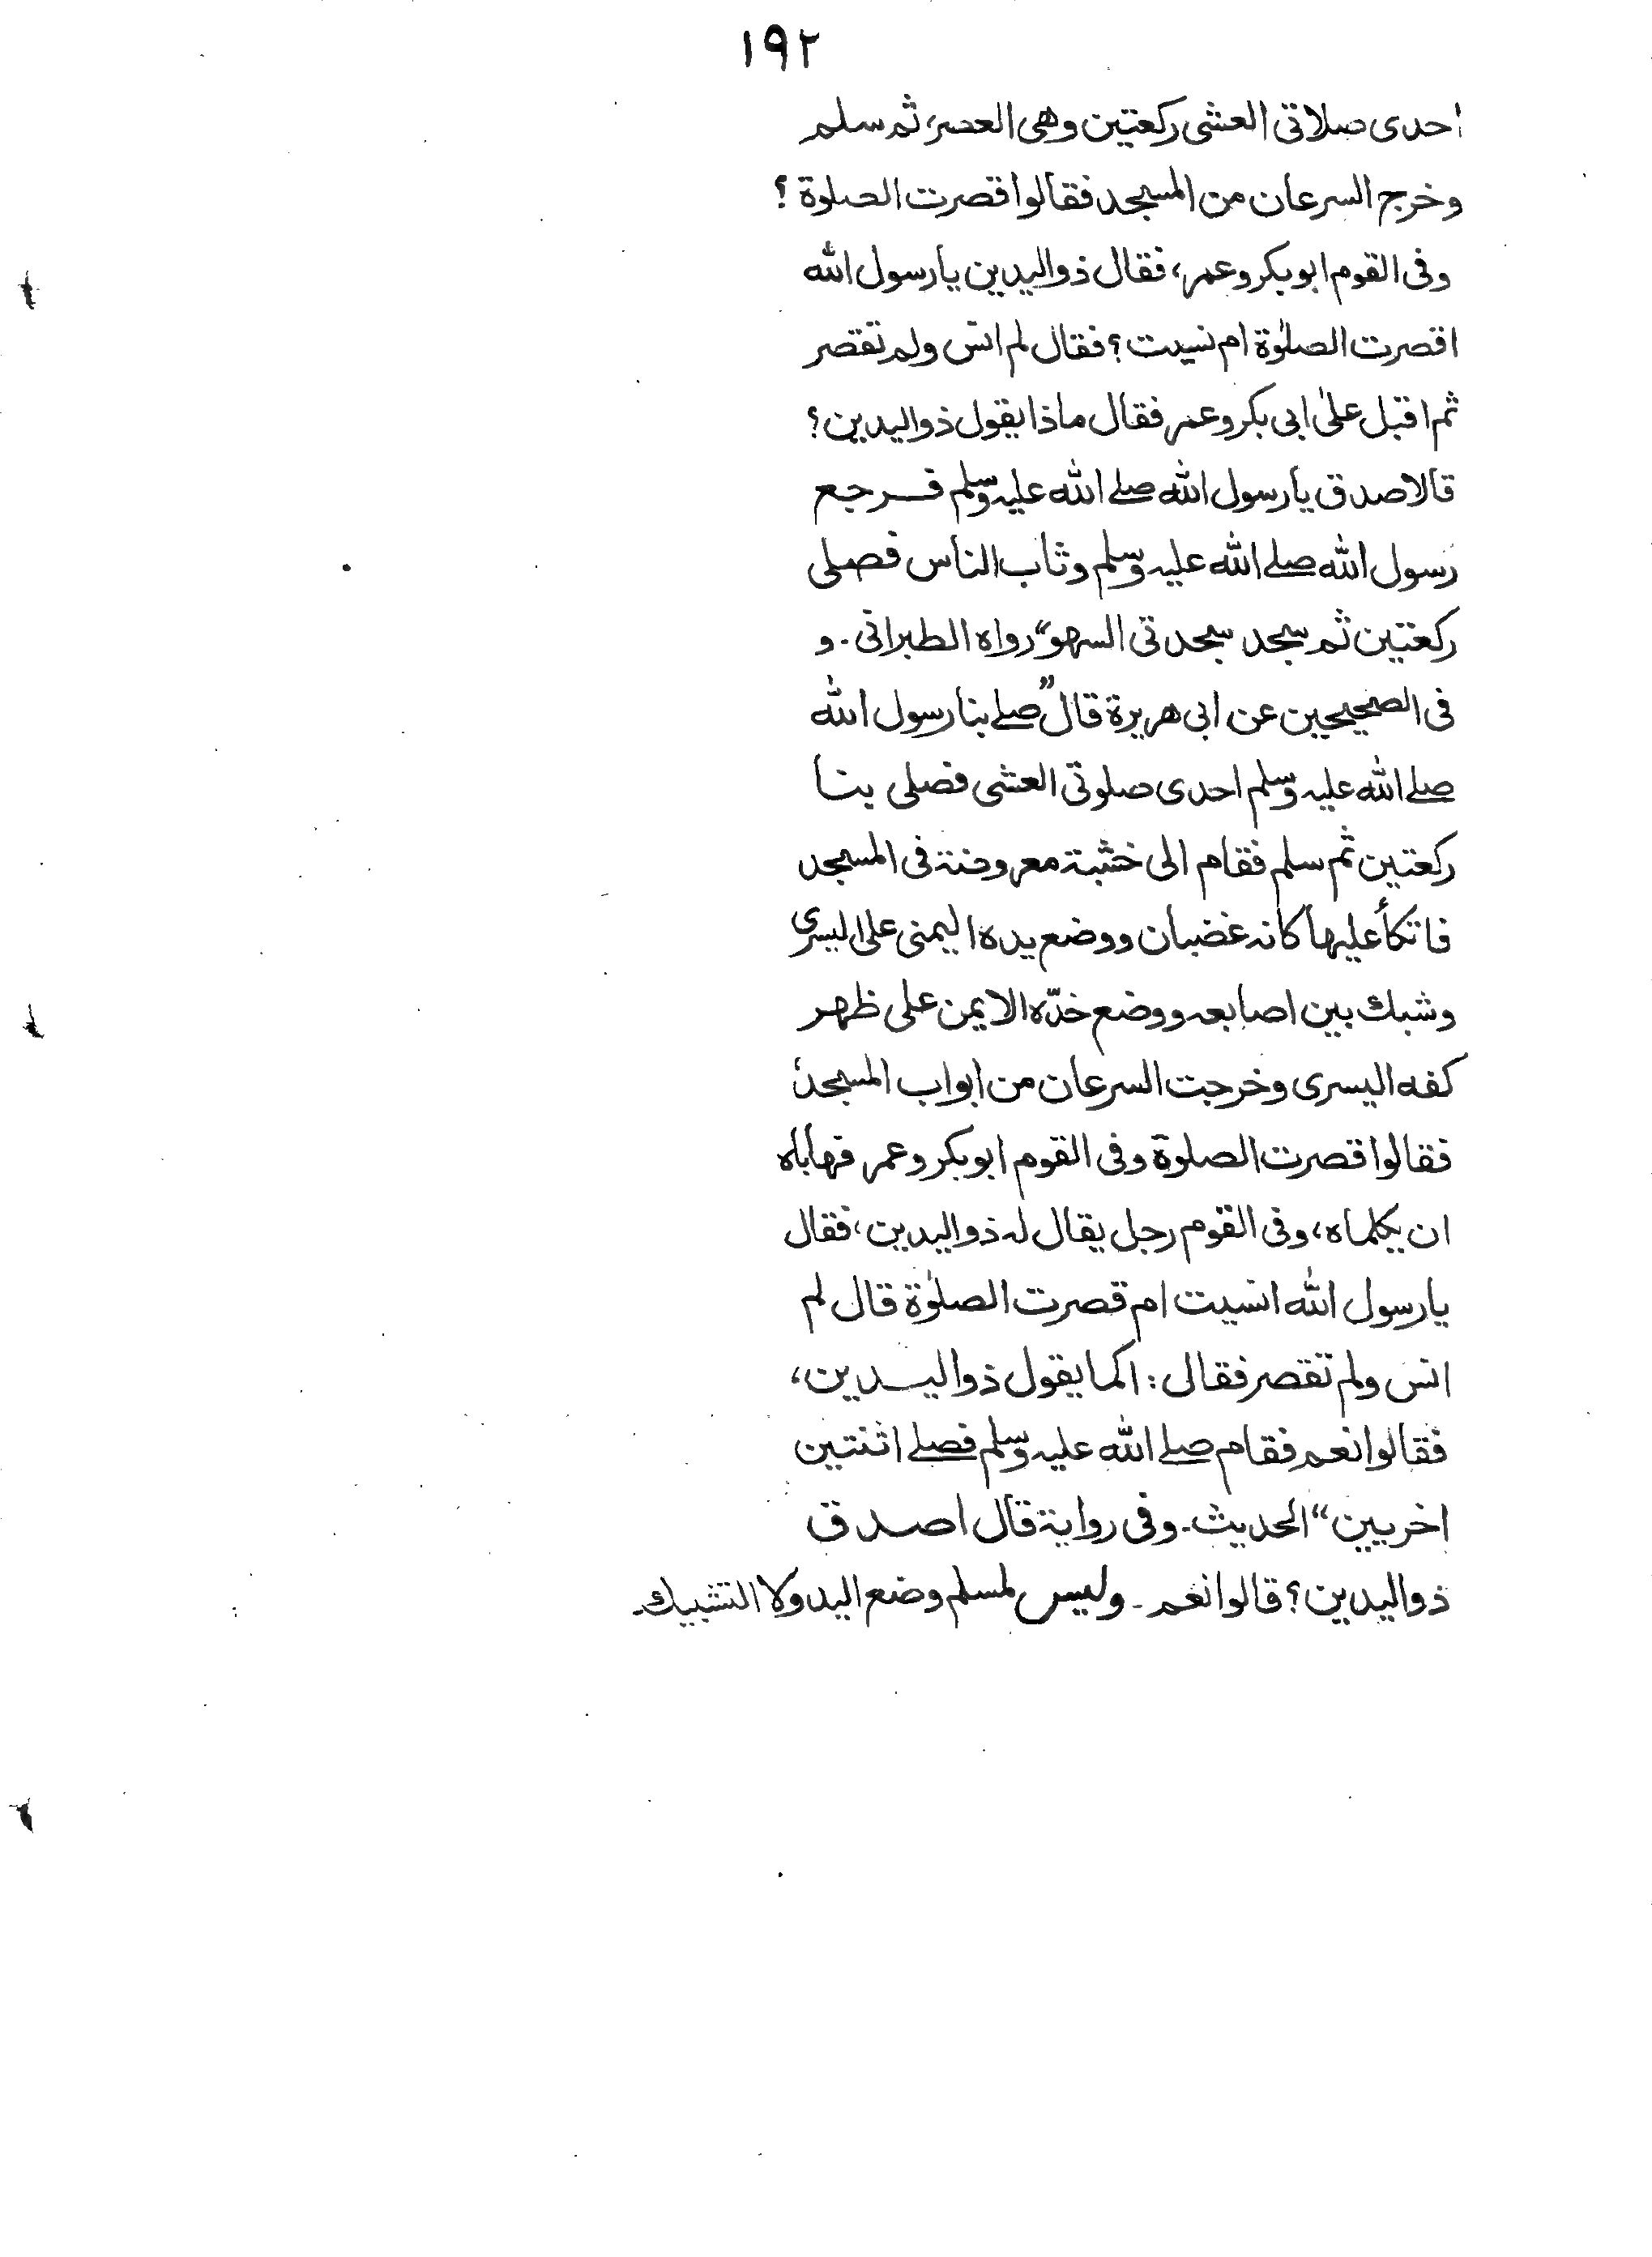 ۱۹۲
احدی صلاتی العشی رکعتین وهی العصر، ثم سلم
وخرج السرعان من المسجد فقالوا قصرت الصلوة ؟
وفی القوم ابوبکر وعمر، فقال ذوالیدین یارسول الله
اقصرت الصلوٰة ام نسیت ؟ فقال لم انس ولم تقصر
ثم اقبل علیٰ ابی بکر وعمر فقال ماذا یقول ذوالیدین ؟
قالا صدق یارسول الله صلے الله علیہ وسلم فرجع
رسول الله صلے الله علیہ وسلم وثاب الناس فصلی
رکعتین ثم سجد سجدتی السهو“ رواہ الطبرانی ۔ و
فی الصحیحین عن ابی هریرة قال ”صلے بنا رسول الله
صلے الله علیہ وسلم احدی صلوتی العشی فصلی بنا
رکعتین ثم سلم فقام الی خشبة معروضة فی المسجد
فاتکأ علیها کانہ غضبان ووضع یدہ الیمنی علی الیسری
وشبك بین اصابعہ ووضع خدّہ الایمن علی ظهر
کفہ الیسری وخرجت السرعان من ابواب المسجد
فقالوا قصرت الصلوة وفی القوم ابوبکر وعمر فهاباہ
ان یکلماہ، وفی القوم رجل یقال لہ ذوالیدین، فقال
یارسول الله انسیت ام قصرت الصلوٰة قال لم
انس ولم تقصر فقال : اکما یقول ذوالیدین،
فقالوا نعم فقام صلے الله علیہ وسلم فصلے اثنتین
اخریین“ الحدیث۔ وفی روایة قال اصدق
ذوالیدین ؟ قالوا نعم ۔ ولیس لمسلم وضع الید ولا التشبیك۔